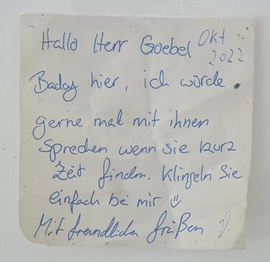 Hallo Herr Goebel Okt -
2022
Baday hier, ich würde
gerne mal mit ihnen
Sprechen wenn sie kurz
Zeit finden. Klingeln Sie
einfach bei mir
Mit freundlichen Grüßen